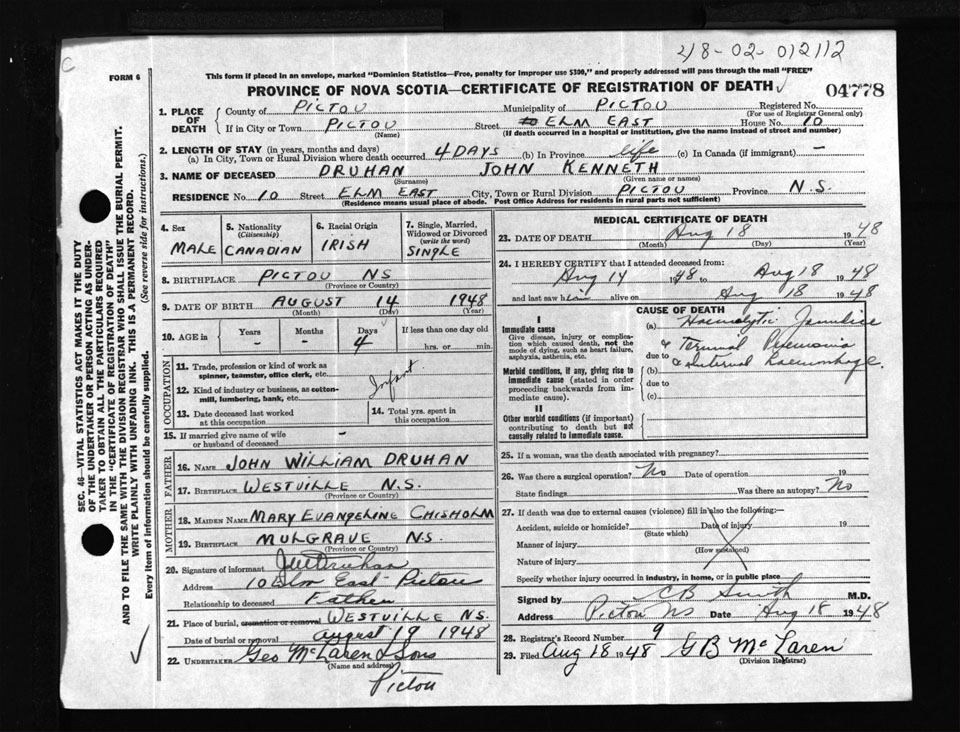 48-02-012112
C
FORM 6
This form if placed in an envelope, marked "Dominion Statistics—Free, penalty for improper use $300," and properly addressed will pass through the mail "FREE"
PROVINCE OF NOVA SCOTIA—CERTIFICATE OF REGISTRATION OF DEATH
04778
1. PLACE OF DEATH
County of PICTOU Municipality of PICTOU Registered No.
(For use of Registrar General only)
If in City or Town PICTOU Street ELM EAST House No. 10
(Name) (If death occurred in a hospital or institution, give the name instead of street and number)
2. LENGTH OF STAY (in years, months and days)
(a) In City, Town or Rural Division where death occurred 4 DAYS (b) In Province life (c) In Canada (if immigrant) —
3. NAME OF DECEASED DRUHAN JOHN KENNETH
(Surname) (Given name or names)
RESIDENCE No. 10 Street ELM EAST City, Town or Rural Division PICTOU Province N.S.
(Residence means usual place of abode. Post Office Address for residents in rural parts not sufficient)
4. Sex MALE
5. Nationality (Citizenship) CANADIAN
6. Racial Origin IRISH
7. Single, Married, Widowed or Divorced (write the word) SINGLE
8. BIRTHPLACE PICTOU NS
(Province or Country)
9. DATE OF BIRTH AUGUST 14 1948
(Month) (Day) (Year)
10. AGE in Years - Months - Days 4 If less than one day old hrs. or min.
OCCUPATION
11. Trade, profession or kind of work as spinner, teamster, office clerk, etc.
12. Kind of industry or business, as cotton-mill, lumbering, bank, etc.
Infant
13. Date deceased last worked at this occupation
14. Total yrs. spent in this occupation
15. If married give name of wife or husband of deceased -
FATHER
16. NAME JOHN WILLIAM DRUHAN
17. BIRTHPLACE WESTVILLE N.S.
(Province or Country)
MOTHER
18. MAIDEN NAME MARY EVANGELINE CHISHOLM
19. BIRTHPLACE MULGRAVE N.S.
(Province or Country)
20. Signature of informant JW Druhan
Address 10 Elm East Pictou
Relationship to deceased Father
21. Place of burial, cremation or removal WESTVILLE N.S.
Date of burial or removal August 19 1948
22. UNDERTAKER Geo McLaren & Sons
(Name and address)
Pictou
MEDICAL CERTIFICATE OF DEATH
23. DATE OF DEATH Aug 18 1948
(Month) (Day) (Year)
24. I HEREBY CERTIFY that I attended deceased from:
Aug 14 1948 to Aug 18 1948
and last saw him alive on Aug 18 1948
CAUSE OF DEATH
I
Immediate cause
Give disease, injury or complication which caused death, not the mode of dying, such as heart failure, asphyxia, asthenia, etc.
Morbid conditions, if any, giving rise to immediate cause (stated in order proceeding backwards from immediate cause).
II
Other morbid conditions (if important) contributing to death but not causally related to immediate cause.
(a) Haemolytic Jaundice
& Terminal Pneumonia
due to
(b) & Internal Haemorrhage.
due to
(c)
25. If a woman, was the death associated with pregnancy?
26. Was there a surgical operation? No Date of operation 19
State findings Was there an autopsy? No
27. If death was due to external causes (violence) fill in also the following:—
Accident, suicide or homicide? Date of injury 19
(State which)
Manner of injury
(How sustained)
Nature of injury
Specify whether injury occurred in industry, in home, or in public place
Signed by CB Smith M.D.
Address Pictou NS Date Aug 18 1948
28. Registrar's Record Number 9
29. Filed Aug 18 1948 GB McLaren
(Division Registrar)
SEC. 46—VITAL STATISTICS ACT MAKES IT THE DUTY
OF THE UNDERTAKER OR PERSON ACTING AS UNDER-
TAKER TO OBTAIN ALL THE PARTICULARS REQUIRED
IN THE "CERTIFICATE OF REGISTRATION OF DEATH"
AND TO FILE THE SAME WITH THE DIVISION REGISTRAR WHO SHALL ISSUE THE BURIAL PERMIT.
WRITE PLAINLY WITH UNFADING INK. THIS IS A PERMANENT RECORD.
Every item of information should be carefully supplied. (See reverse side for instructions.)